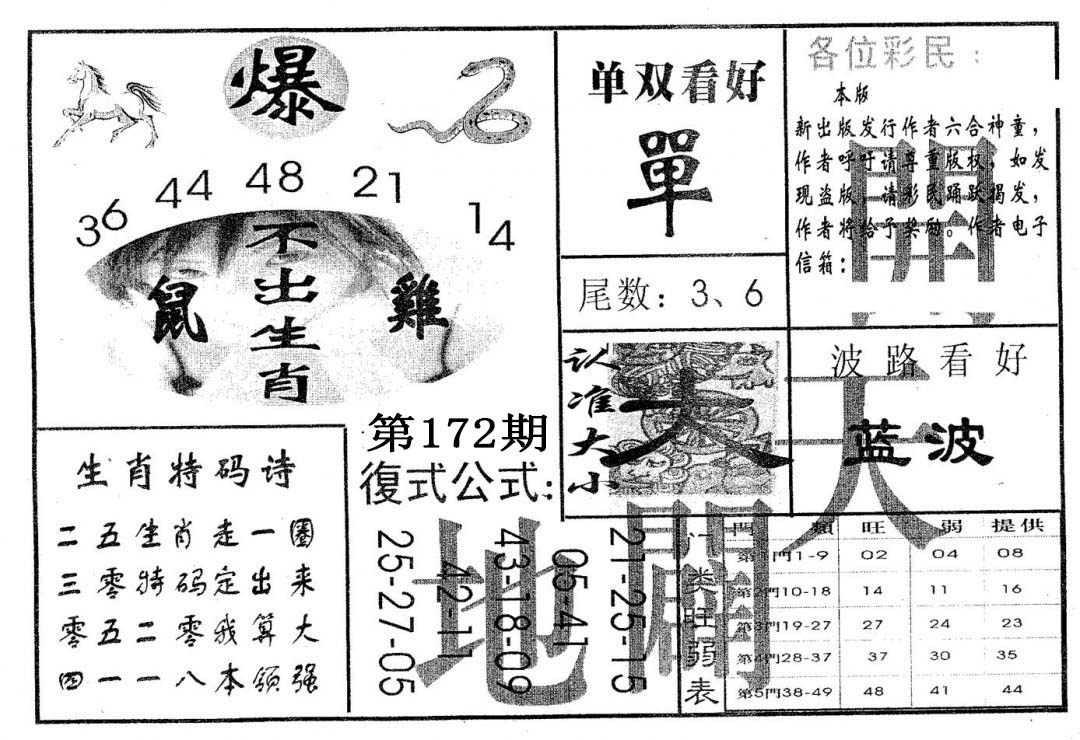 爆
36 44 48 21 14
不出生肖
鼠
雞
单双看好
單
尾数：3、6
各位彩民：
本版
新出版发行作者六合神童，
作者呼吁请尊重版权，如发
现盗版，请彩民踊跃揭发，
作者将给予奖励。作者电子
信箱：
認准大小
大
波路看好
蓝波
天
開
地
闢
生肖特码诗
二五生肖走一圈
三零特码定出来
零五二零我算大
四一一八本领强
第172期
復式公式：
25-27-05
42-11
43-18-09
05-41
21-25-15
门类旺弱表
門 類 旺 弱 提供
第1門1-9 02 04 08
第2門10-18 14 11 16
第3門19-27 27 24 23
第4門28-37 37 30 35
第5門38-49 48 41 44